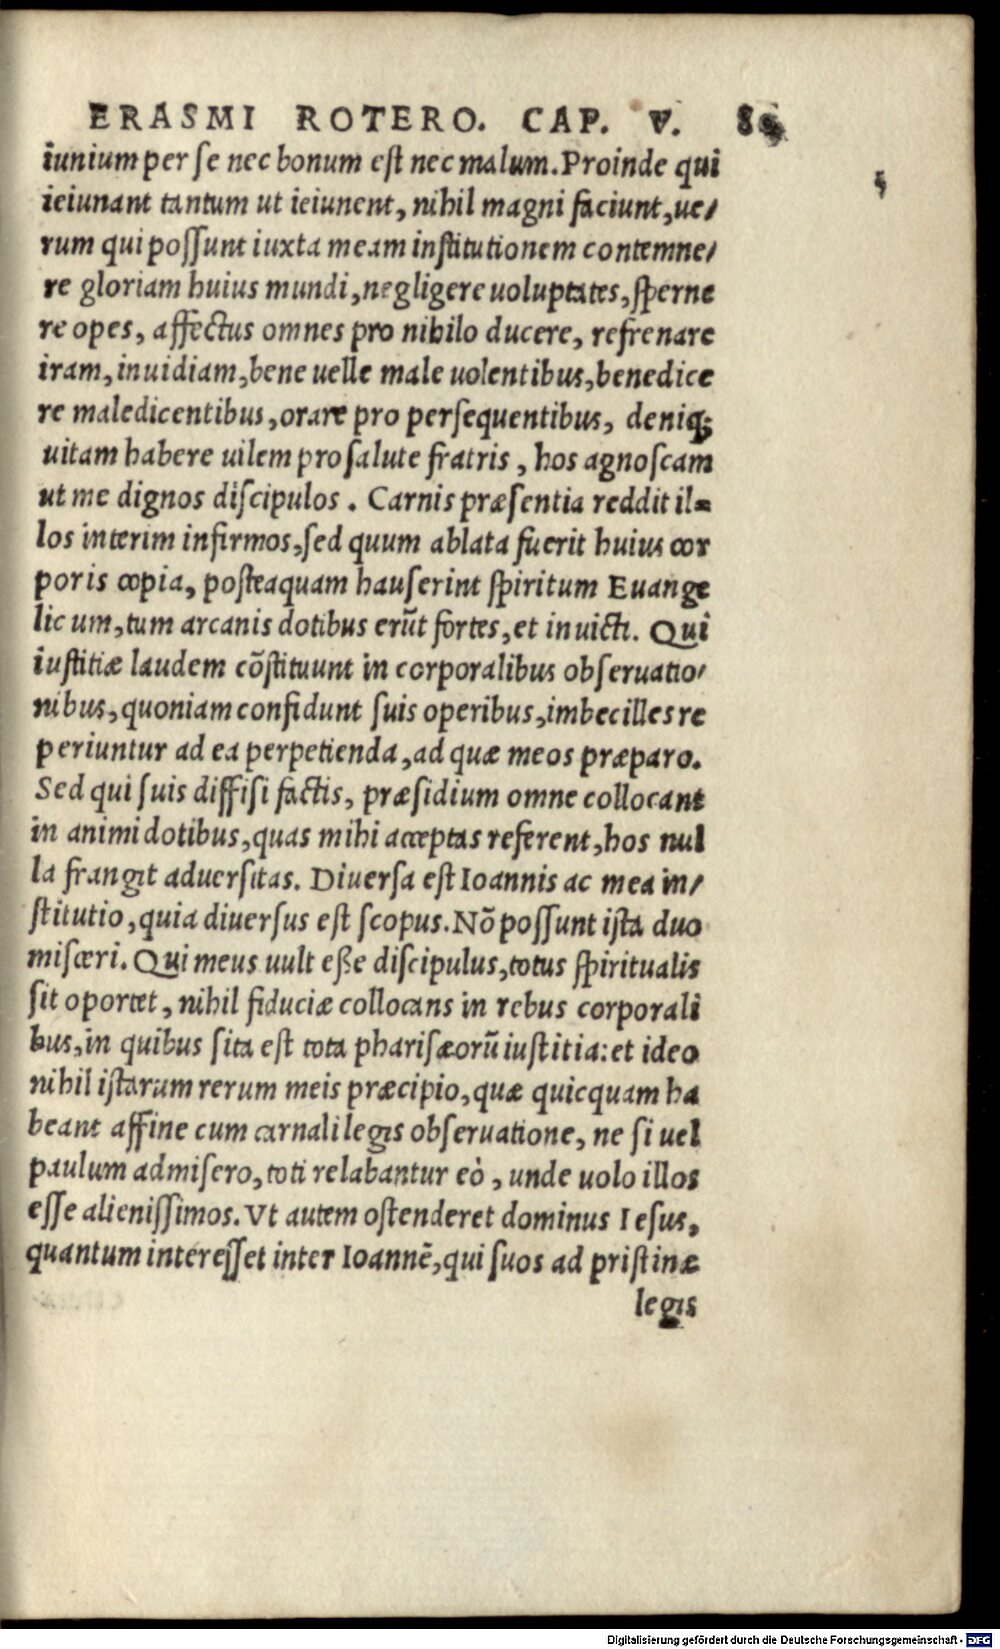 ERASMI ROTERO. CAP. V.
iunium per se nec bonum est nec malum. Proinde qui
ieiunant tantum ut ieiunent, nihil magni faciunt, ue/
rum qui possunt iuxta meam institutionem contemne/
re gloriam huius mundi, negligere uoluptates, sperne
re opes, affectus omnes pro nihilo ducere, refrenare
iram, inuidiam, bene uelle male uolentibus, benedice
re maledicentibus, orare pro persequentibus, deniq;
uitam habere uilem pro salute fratris, hos agnoscam
ut me dignos discipulos. Carnis præsentia reddit il=
los interim infirmos, sed quum ablata fuerit huius cor
poris copia, posteaquam hauserint spiritum Euange
licum, tum arcanis dotibus erūt fortes, et inuicti. Qui
iustitiæ laudem cōstituunt in corporalibus obseruatio/
nibus, quoniam confidunt suis operibus, imbecilles re
periuntur ad ea perpetienda, ad quæ meos præparo.
Sed qui suis diffisi factis, præsidium omne collocant
in animi dotibus, quas mihi acceptas referent, hos nul
la frangit aduersitas. Diuersa est Ioannis ac mea in/
stitutio, quia diuersus est scopus. Nō possunt ista duo
misceri. Qui meus uult eße discipulus, totus spiritualis
sit oportet, nihil fiduciæ collocans in rebus corporali
bus, in quibus sita est tota pharisæorū iustitia: et ideo
nihil istarum rerum meis præcipio, quæ quicquam ha
beant affine cum carnali legis obseruatione, ne si uel
paulum admisero, toti relabantur eò, unde uolo illos
esse alienissimos. Vt autem ostenderet dominus Iesus,
quantum interesset inter Ioannē, qui suos ad pristinæ
legis
Digitalisierung gefördert durch die Deutsche Forschungsgemeinschaft - DFG